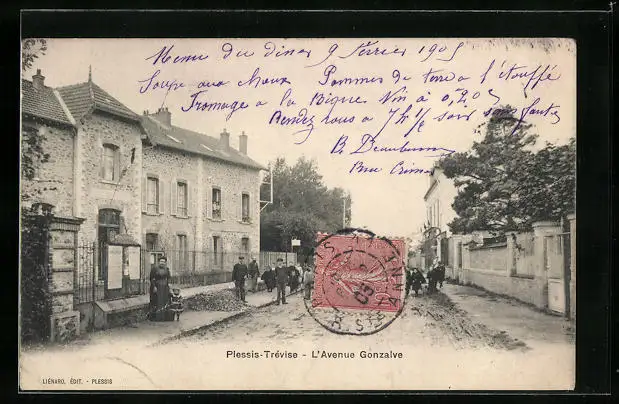 Menu du diner 9 Février 1905
Soupe aux choux Pommes de terre à l'étouffé
Fromage à la Bique Vin à 0,20
Rendez vous à 7h½ soir sans faute
Plessis-Trévise - L'Avenue Gonzalve
LIÉNARD, ÉDIT. - PLESSIS